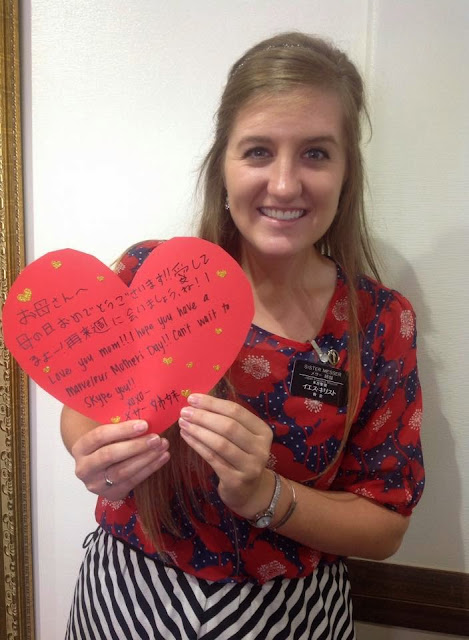 お母さんへ
母の日おめでとうございます!!愛して
Love you mom!!! I hope you have a
marvelous Mother's Day!! Can't wait to
Skype you!!
SISTER MESSER
メサー 姉妹
末日聖徒
イエス・キリスト
教会